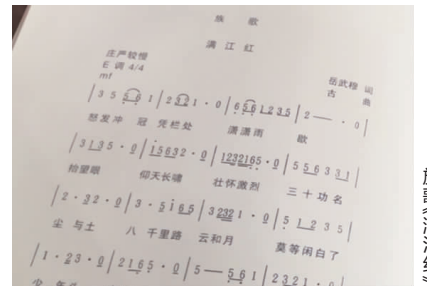 族 歌
满 江 红
庄严较慢
E 调 4/4
mf
岳武穆 词
古 曲
|3 5 5 6 1|2 3 2 1 · 0|6 5 6 1 2 3 5|2 — · 0|
怒发冲 冠 凭栏处 潇潇雨 歇
|3 1 3 5 · 0|1 5 6 3 2 · 0|1 2 3 2 1 6 5 · 0|5 5 6 3 3 1|
抬望眼 仰天长啸 壮怀激烈 三 十 功 名
|2 · 3 2 · 0|3 · 5 1 6 5|3 2 3 2 1 · 0|5 1 2 3 5|
尘 与土 八 千里路 云和月 莫等闲白了
|1 · 2 3 · 0|2 1 6 5 · 0|5 — 5 6 1|2 3 2 1 · 0|